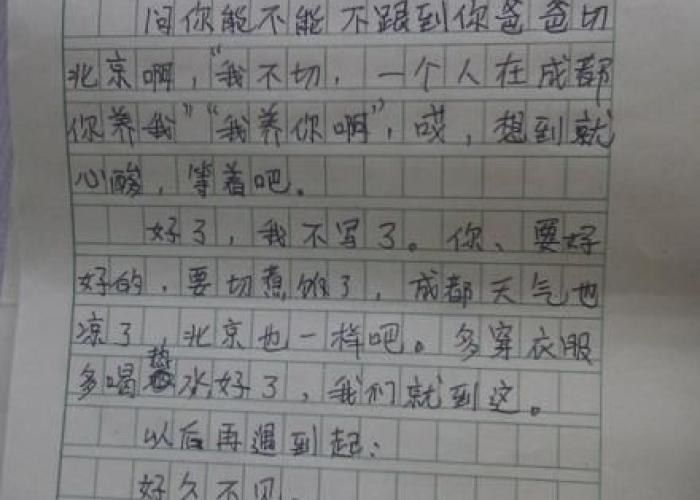 问你能不能不跟到你爸爸切
北京啊，“我不切，一个人在成都
你养我”“我养你啊”，哎，想到就
心酸，等着吧。
好了，我不写了。你、要好
好的，要切煮饭了，成都天气也
凉了 北京也一样吧。多穿衣服
多喝热水好了，我们就到这。
以后再遇到起：
好久不见